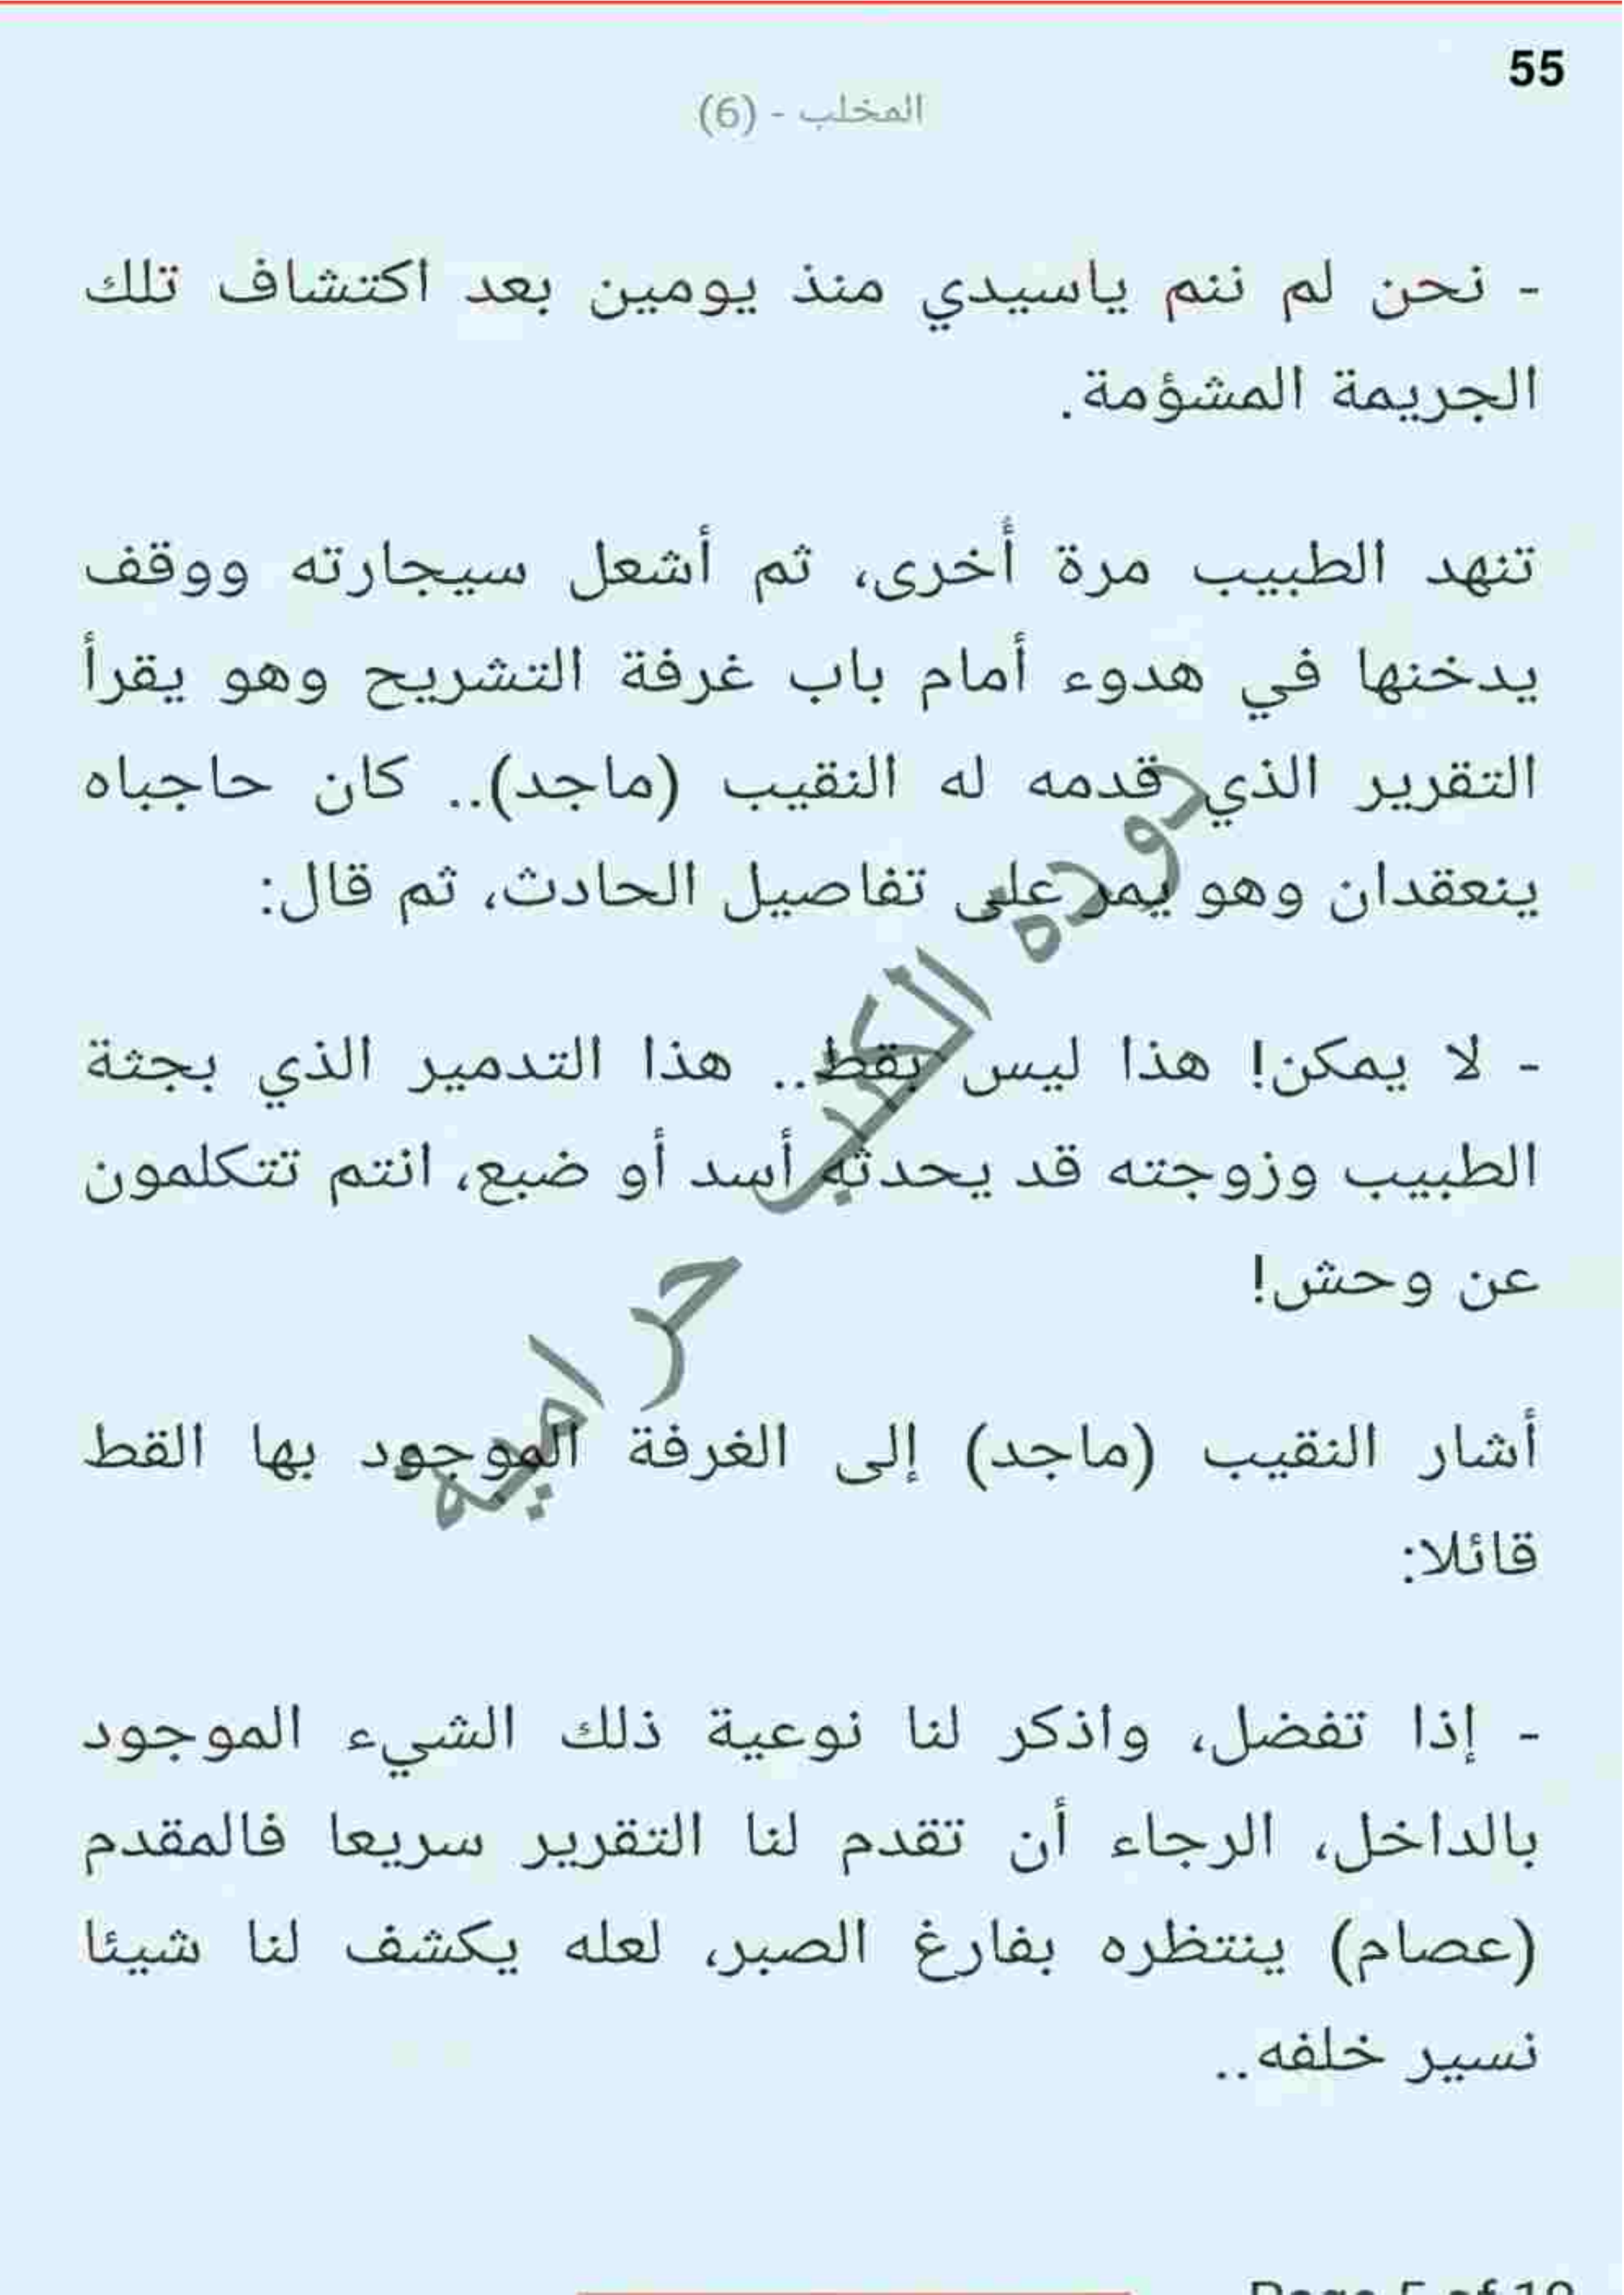 55
المخلب - (6)
- نحن لم ننم ياسيدي منذ يومين بعد اكتشاف تلك
الجريمة المشؤمة.
تنهد الطبيب مرة أُخرى، ثم أشعل سيجارته ووقف
يدخنها في هدوء أمام باب غرفة التشريح وهو يقرأ
التقرير الذي قدمه له النقيب (ماجد).. كان حاجباه
ينعقدان وهو يمر على تفاصيل الحادث، ثم قال:
- لا يمكن! هذا ليس بقط.. هذا التدمير الذي بجثة
الطبيب وزوجته قد يحدثه أسد أو ضبع، انتم تتكلمون
عن وحش!
أشار النقيب (ماجد) إلى الغرفة الموجود بها القط
قائلا:
- إذا تفضل، واذكر لنا نوعية ذلك الشيء الموجود
بالداخل، الرجاء أن تقدم لنا التقرير سريعا فالمقدم
(عصام) ينتظره بفارغ الصبر، لعله يكشف لنا شيئا
نسير خلفه..
دوده الكتب حراميه
Page 5 of 10